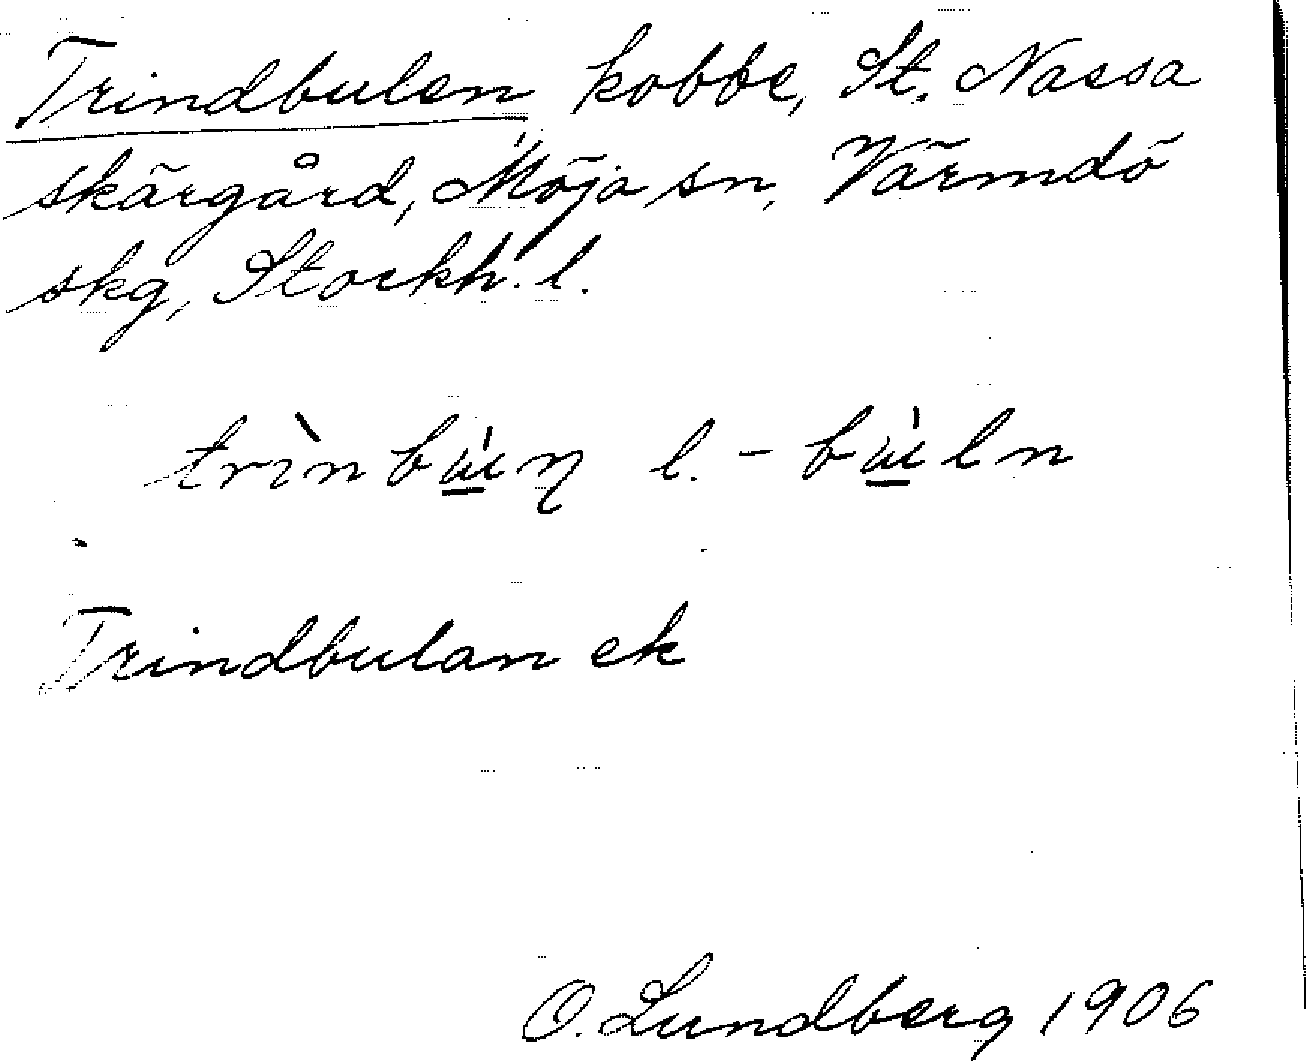 Trindbulen kobbe, St. Nassa
skärgård, Möja sn, Värmdö
skg, Stockh. l.
l.
Trindbulan ek
O. Lundberg 1906